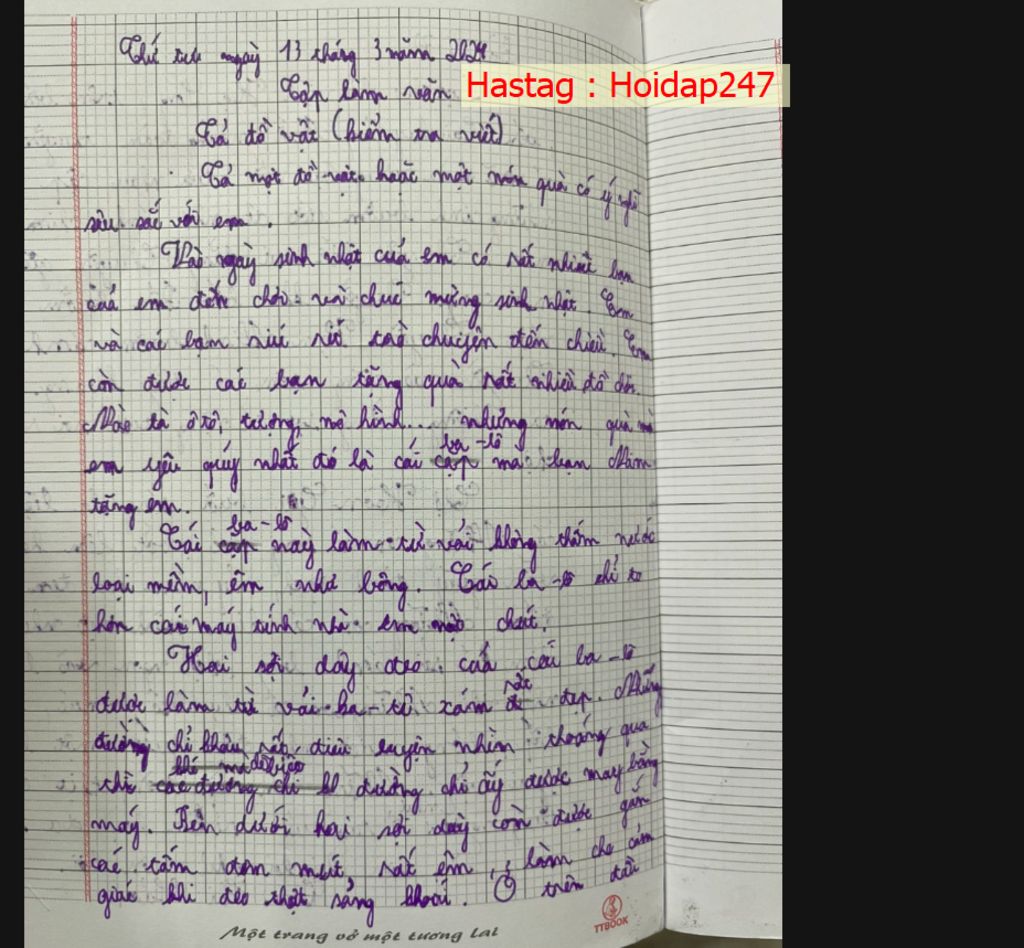 Thứ tư ngày 13 tháng 3 năm 2024
Hastag : Hoidap247
Tập làm văn
Tả đồ vật (kiểm tra viết)
Tả một đồ vật hoặc một món quà có ý nghĩ
sâu sắc với em.
Vào ngày sinh nhật của em có rất nhiều bạn
của em đến chơi và chúc mừng sinh nhật. Em
và các bạn ríu rít trò chuyện đến chiều. Em
còn được các bạn tặng quà rất nhiều đồ chơi.
Nào là ô tô, tượng, mô hình... nhưng món quà mà
em yêu quý nhất đó là cái cặp ba-lô mà bạn Nam
tặng em.
Cái cặp ba-lô này làm từ vải không thấm nước
loại mềm, êm như bông. Cái ba-lô chỉ to
hơn cái máy tính nhà em một chút.
Hai sợi dây đeo của cái ba-lô
được làm từ vải xám rất đẹp. Những
đường chỉ khâu rất điêu luyện nhìn thoáng qua
thì khó mà đường chỉ ấy được may bằng
máy. Bên dưới hai sợi dây còn được gắn
các tấm đệm mút, rất êm, làm cho cảm
giác khi đeo thật sảng khoái. Ở trên đầu
Một trang vở một tương lai
TTBOOK